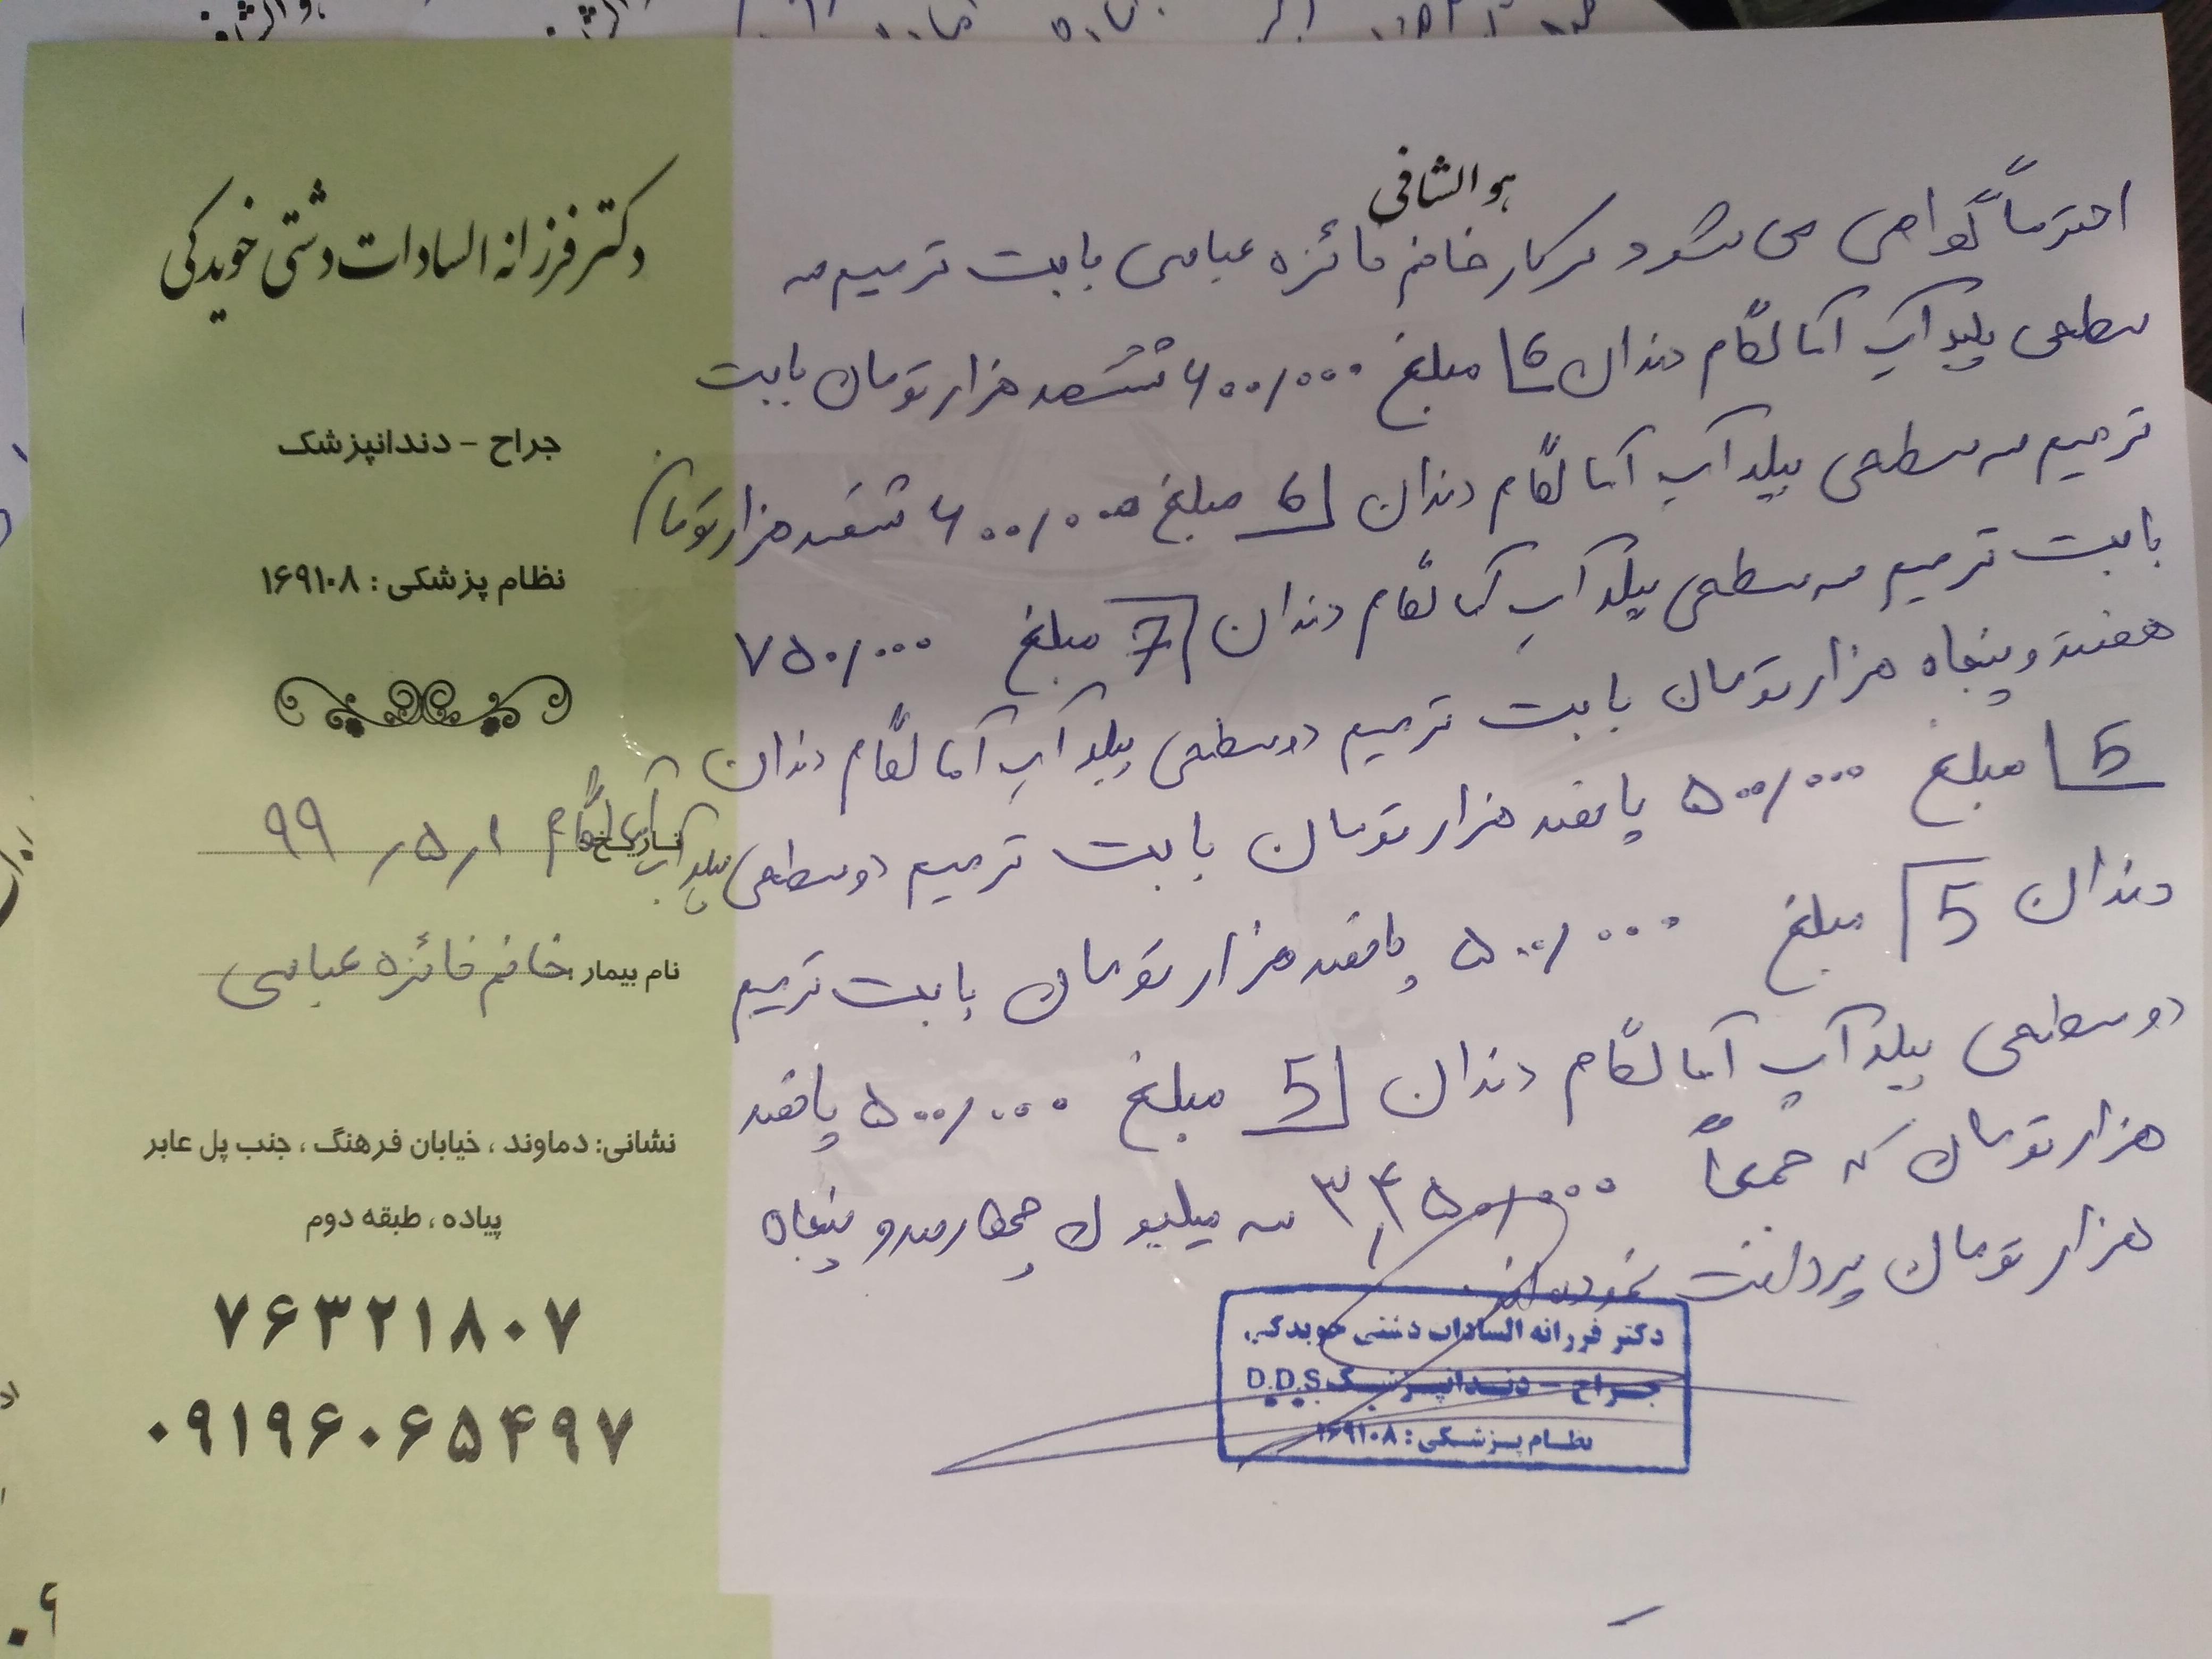 هو الشافی
احتراماً گواهی می شود سرکار خانم فائزه عباسی بابت ترمیم سه
سطحی بیلد آپ آمالگام دندان 6 مبلغ ۶۰۰/۰۰۰ ششصد هزار تومان بابت
ترمیم سه سطحی بیلد آپ آمالگام دندان 6 مبلغ ۶۰۰/۰۰۰ ششصد هزار تومان
بابت ترمیم سه سطحی بیلد آپ آمالگام دندان 7 مبلغ ۷۵۰/۰۰۰
هفتصد و پنجاه هزار تومان بابت ترمیم دو سطحی بیلد آپ آمالگام دندان
5 مبلغ ۵۰۰/۰۰۰ پانصد هزار تومان بابت ترمیم دو سطحی بیلد آپ آمالگام
دندان 5 مبلغ ۵۰۰/۰۰۰ پانصد هزار تومان بابت ترمیم
دو سطحی بیلد آپ آمالگام دندان 5 مبلغ ۵۰۰/۰۰۰ پانصد
هزار تومان که جمعاً ۳,۴۵۰/۰۰۰ سه میلیون چهارصد و پنجاه
هزار تومان پرداخت نموده اند.
دکتر فرزانه السادات دشتی خویدکی
جراح - دندانپزشک D.D.S
نظام پزشکی : ۱۶۹۱۰۸
دکتر فرزانه السادات دشتی خویدکی
جراح - دندانپزشک
نظام پزشکی : ۱۶۹۱۰۸
تاریخ: ۹۹/۵/۱
نام بیمار: خانم فائزه عباسی
نشانی: دماوند ، خیابان فرهنگ ، جنب پل عابر
پیاده ، طبقه دوم
۷۶۳۲۱۸۰۷
۰۹۱۹۶۰۶۵۴۹۷